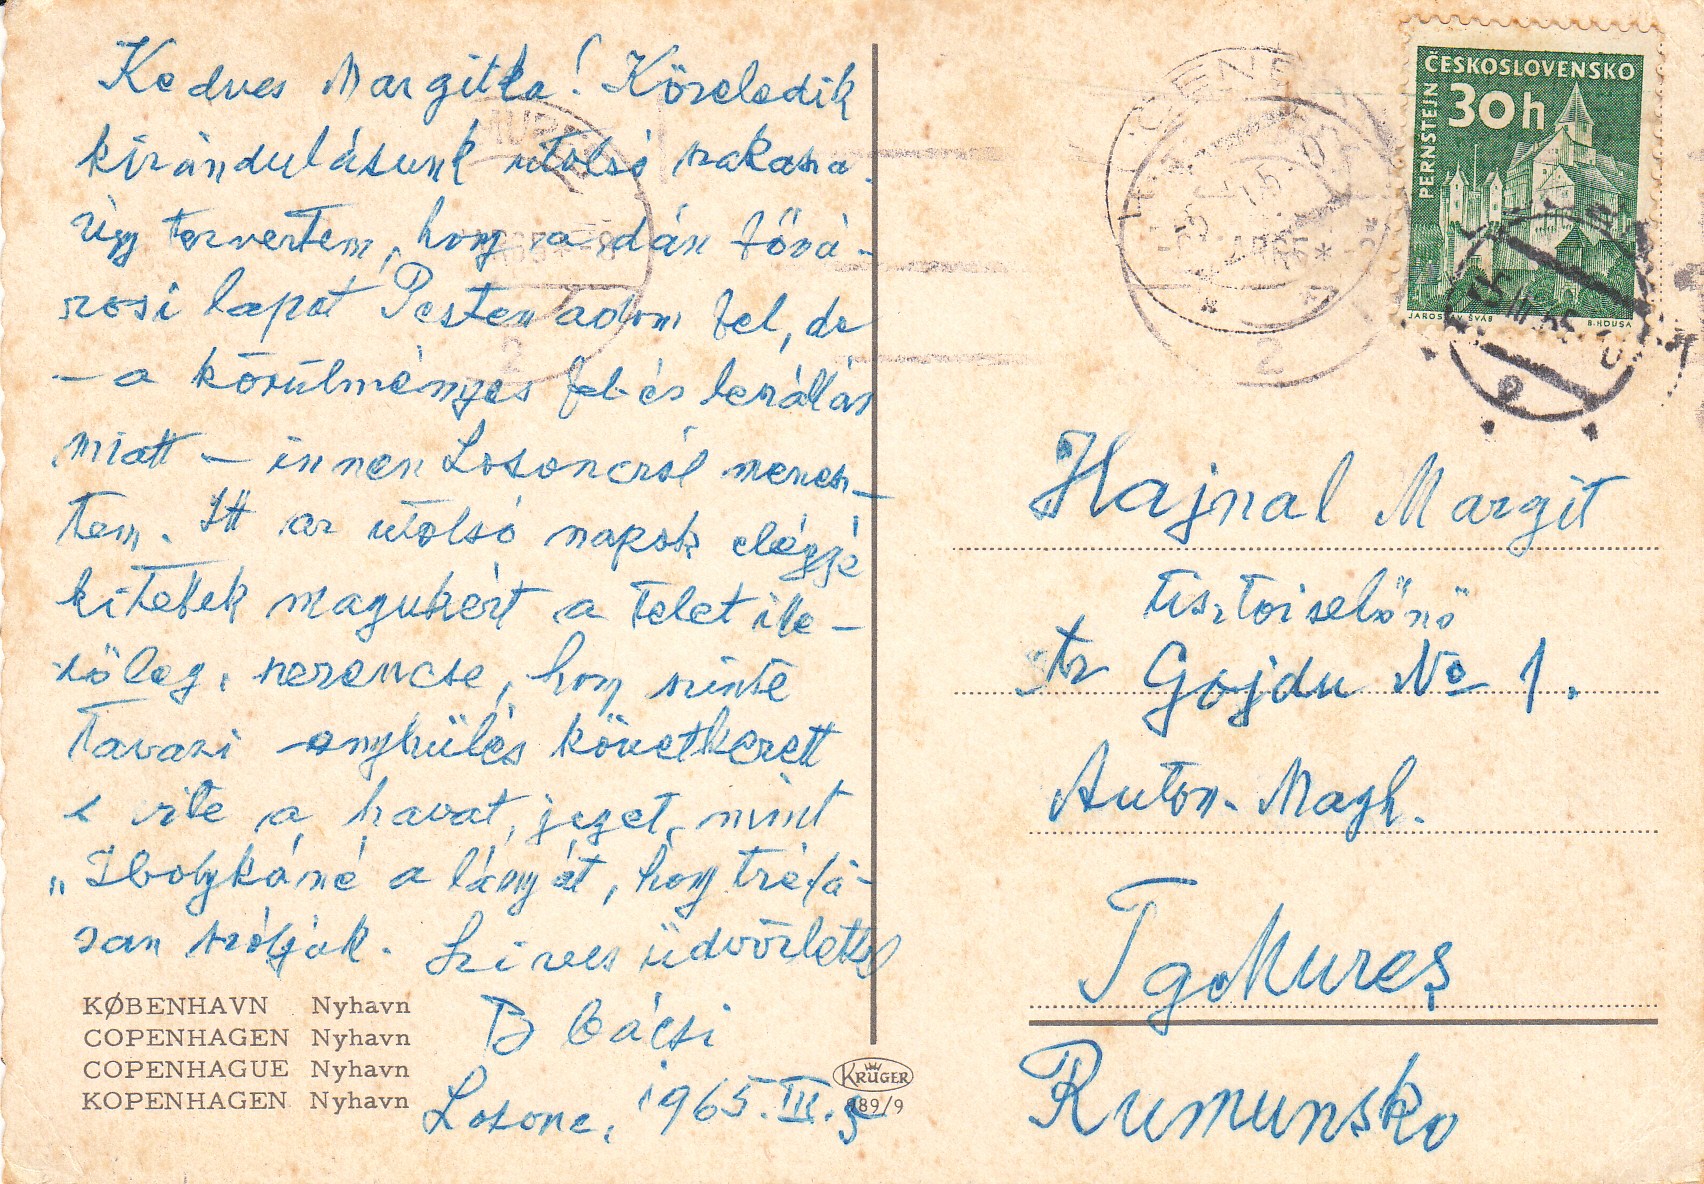 Kedves Margitka! Közeledik
kirándulásunk utolsó szakasza.
Úgy terveztem, hogy a dán fővá-
rosi lapot Pesten adom fel, de
– a körülményes fel- és leszállás
miatt – innen Losoncról menesz-
tem. Itt az utolsó napok eléggé
kitettek magukért a telet ille-
tőleg, szerencse, hogy szinte
tavaszi enyhülés következett
s vitte a havat, jeget, mint
„Ibolykáné a lányát, hogy tréfá-
san szóljak. Szives üdvözlettel
B bácsi
Losonc, 1965. III. 5
KØBENHAVN Nyhavn
COPENHAGEN Nyhavn
COPENHAGUE Nyhavn
KOPENHAGEN Nyhavn
KRÜGER
989/9
ČESKOSLOVENSKO
30h
PERNŠTEJN
JAROSLAV ŠVÁB
B. HOUSA
2
Hajnal Margit
tisztviselőnő
str Gojdu No 1.
Auton. Magh.
Tg. Mureş
Rumunsko